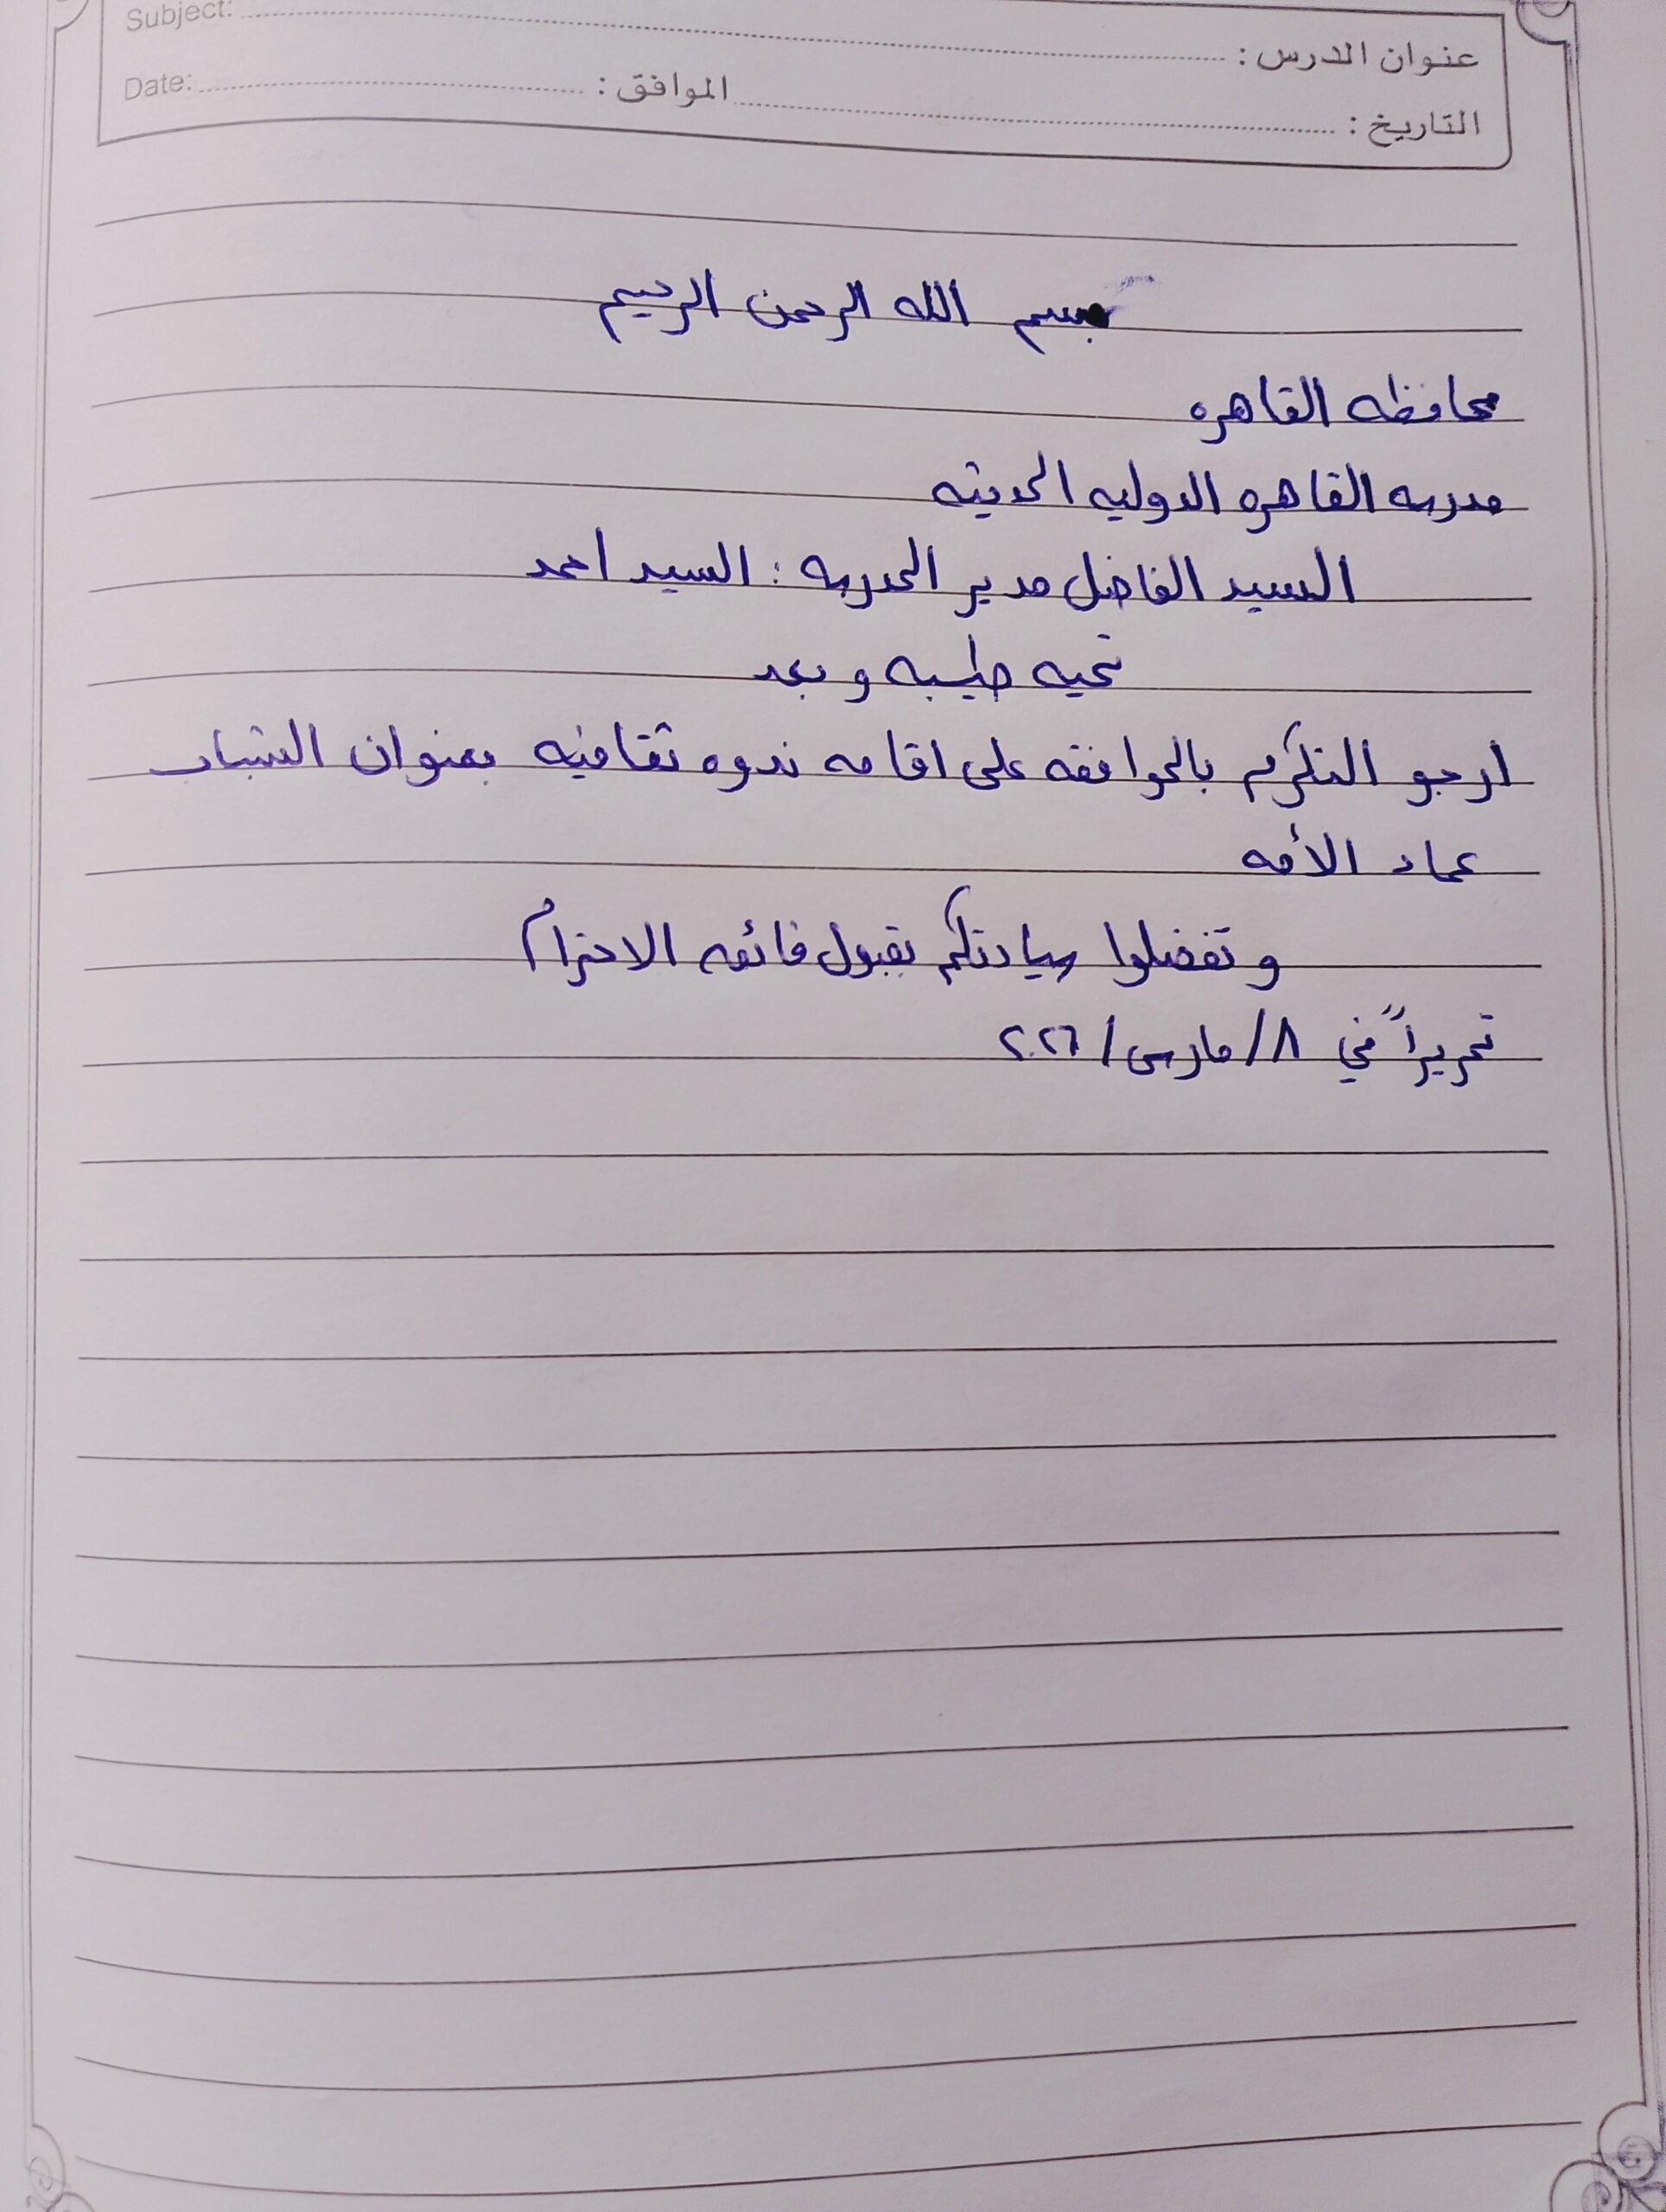 Subject:
عنوان الدرس :
Date: الموافق : التاريخ :
بسم الله الرحمن الرحيم
محافظه القاهره
مدرسه القاهره الدوليه الحديثه
السيد الفاضل مدير المدرسه : السيد احمد
تحيه طيبه وبعد
ارجو التكرم بالموافقه على اقامه ندوه ثقافيه بعنوان الشباب
عماد الأمه
وتفضلوا سيادتكم بقبول فائق الاحترام
تحريراً في ٨/مارس/٢٠٢٦